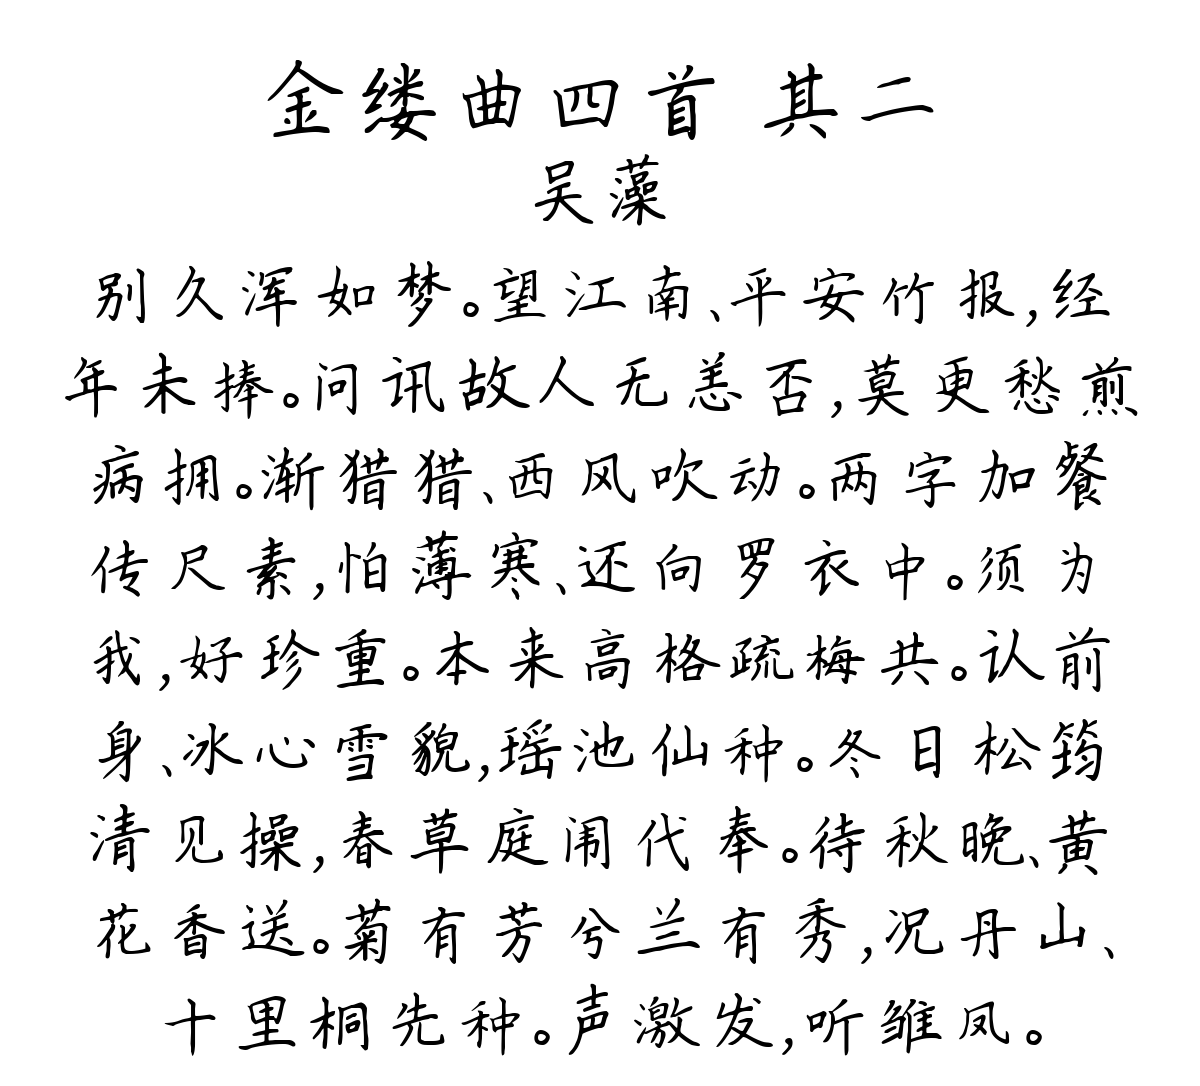 金缕曲四首 其二
吴藻
别久浑如梦。望江南、平安竹报,经
年未捧。问讯故人无恙否,莫更愁煎
病拥。渐猎猎、西风吹动。两字加餐
传尺素,怕薄寒、还向罗衣中。须为
我,好珍重。本来高格疏梅共。认前
身、冰心雪貌,瑶池仙种。冬日松筠
清见操,春草庭闱代奉。待秋晚、黄
花香送。菊有芳兮兰有秀,况丹山、
十里桐先种。声激发,听雏凤。